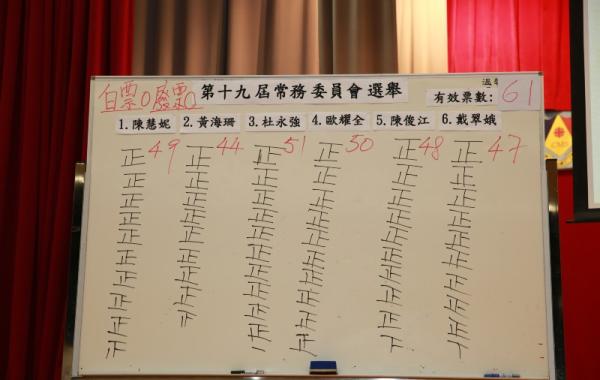 白票0 廢票0 第十九屆常務委員會選舉
有效票數: 61
1.陳慧妮 2.黃海珊 3.杜永強 4.歐耀全 5.陳俊江 6.戴翠娥
正 49 正 44 正 51 正 50 正 48 正 47
正 正 正 正 正 正
正 正 正 正 正 正
正 正 正 正 正 正
正 正 正 正 正 正
正 正 正 正 正 正
正 正 正 正 正 正
正 正 正 正 正 正
正 正 正 正 正
正 正